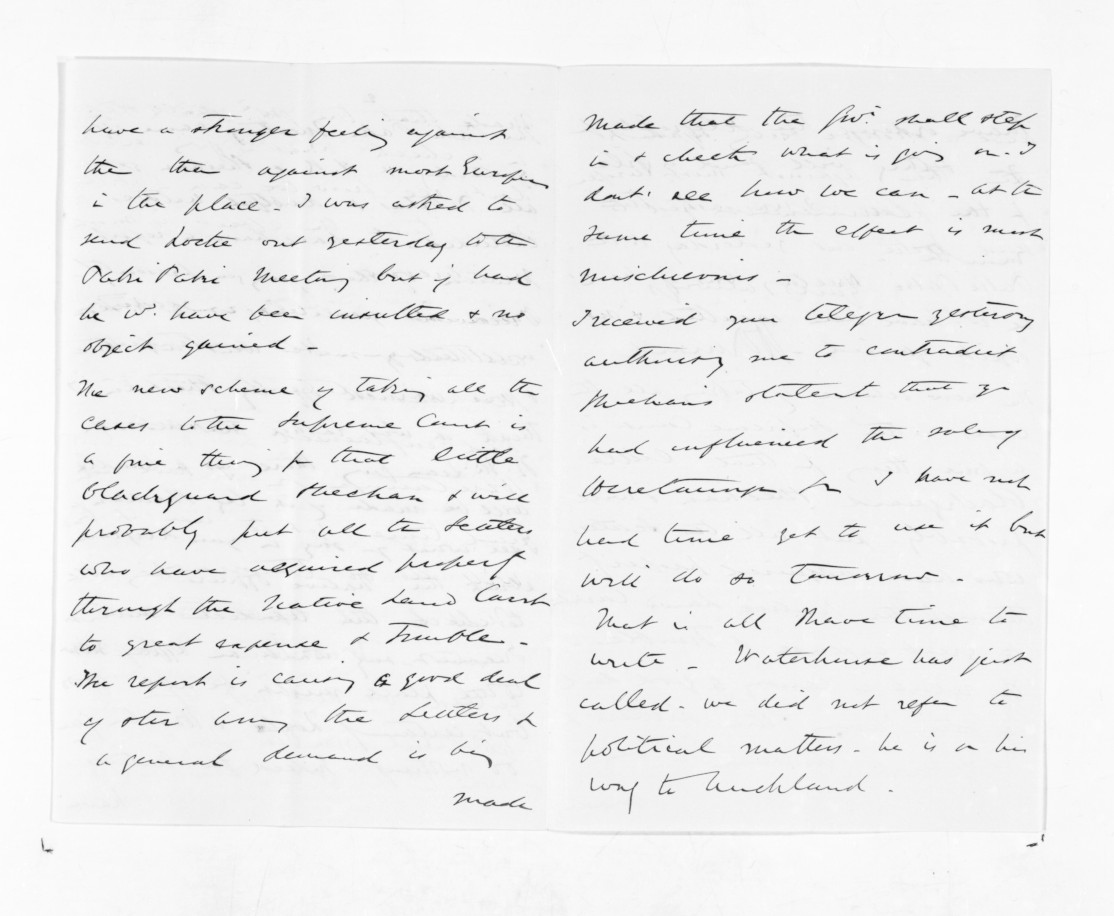 have a stronger feeling against
the than against most Europeans
in the place - I was asked to
send Locke out yesterday to the
Paki Paki meeting but if had
he wd. have been insulted & no
object gained -
The new scheme of taking all the
cases to the Supreme Court is
a fine thing for that little
blackguard Sheehan & will
probably put all the Settlers
who have acquired property
through the Native Land Court
to great expense & Trouble -
The report is causing a good deal
of stir among the Settlers &
a general demand is being
made
made that the Govt. shall step
in & check what is going on - I
dont see how we can - at the
same time the effect is most
mischievous -
I received your telegm yesterday
authorising me to contradict
Sheehan's statent that you
had influenced the sale of
for I have not
had time yet to use it but
will do so tomorrow -
That is all I have time to
write - Waterhouse has just
called - we did not refer to
political matters - he is on his
way to Auckland -